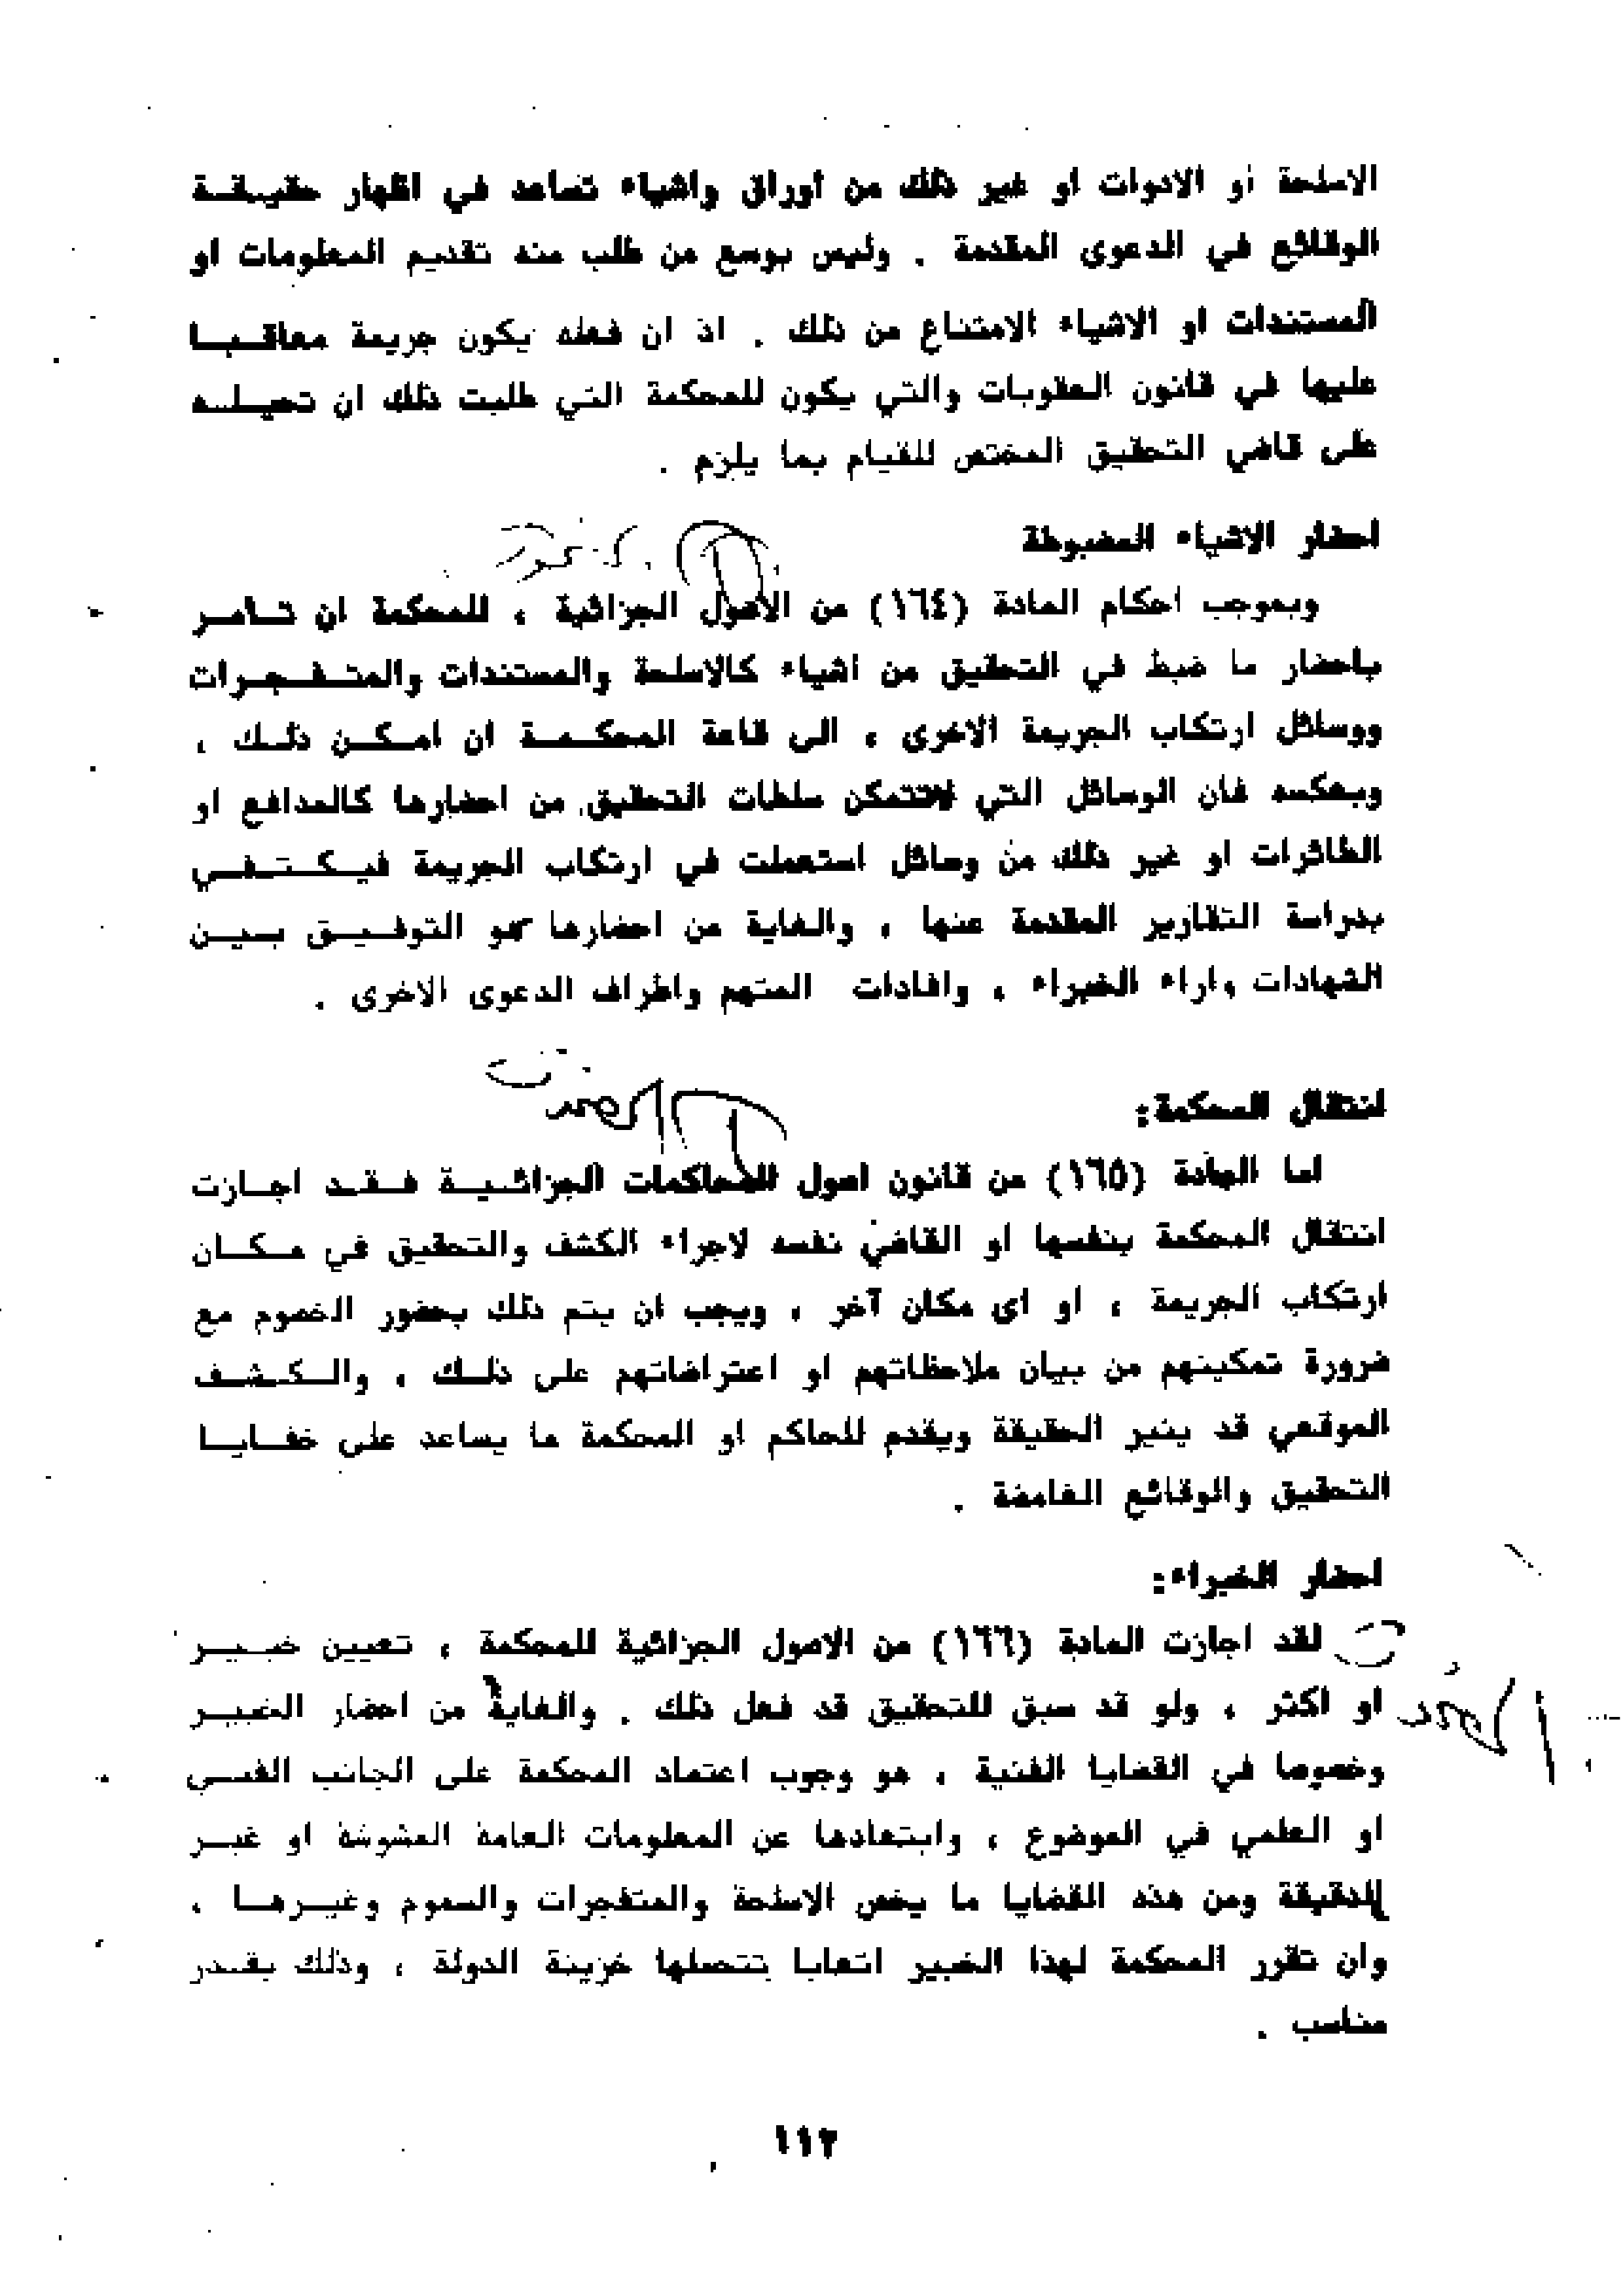 الاسلحة او الادوات او غير ذلك من اوراق واشياء تساعد في اظهار حقيقة
الوقائع في الدعوى المقدمة . وليس بوسع من طلب منه تقديم المعلومات او
المستندات او الاشياء الامتناع من ذلك . اذ ان فعله يكون جريمة معاقبا
عليها في قانون العقوبات والتي يكون للمحكمة التي طلبت ذلك ان تحيله
على قاضي التحقيق المختص للقيام بما يلزم .
احضار الاشياء المضبوطة
وبموجب احكام المادة (١٦٤) من الاصول الجزائية ، للمحكمة ان تامر
باحضار ما ضبط في التحقيق من اشياء كالاسلحة والمستندات والمتفجرات
ووسائل ارتكاب الجريمة الاخرى ، الى قاعة المحكمة ان امكن ذلك ،
وبعكسه فان الوسائل التي لاتتمكن سلطات التحقيق من احضارها كالمدافع او
الطائرات او غير ذلك من وسائل استعملت في ارتكاب الجريمة فيكتفي
بدراسة التقارير المقدمة عنها ، والغاية من احضارها هو التوفيق بين
الشهادات واراء الخبراء ، وافادات المتهم واطراف الدعوى الاخرى .
انتقال المحكمة:
اما المادة (١٦٥) من قانون اصول المحاكمات الجزائية فقد اجازت
انتقال المحكمة بنفسها او القاضي نفسه لاجراء الكشف والتحقيق في مكان
ارتكاب الجريمة ، او اى مكان آخر ، ويجب ان يتم ذلك بحضور الخصوم مع
ضرورة تمكينهم من بيان ملاحظاتهم او اعتراضاتهم على ذلك ، والكشف
الموقعي قد ينير الحقيقة ويقدم للحاكم او المحكمة ما يساعد على خفايا
التحقيق والوقائع الغامضة .
احضار الخبراء:
لقد اجازت المادة (١٦٦) من الاصول الجزائية للمحكمة ، تعيين خبير
او اكثر ، ولو قد سبق للتحقيق قد فعل ذلك . والغاية من احضار الخبير
وخصوصا في القضايا الفنية ، هو وجوب اعتماد المحكمة على الجانب الفني
او العلمي في الموضوع ، وابتعادها عن المعلومات العامة المشوشة او غير
الدقيقة ومن هذه القضايا ما يخص الاسلحة والمتفجرات والسموم وغيرها ،
وان تقرر المحكمة لهذا الخبير اتعابا تتحملها خزينة الدولة ، وذلك بقدر
مناسب .
١١٢